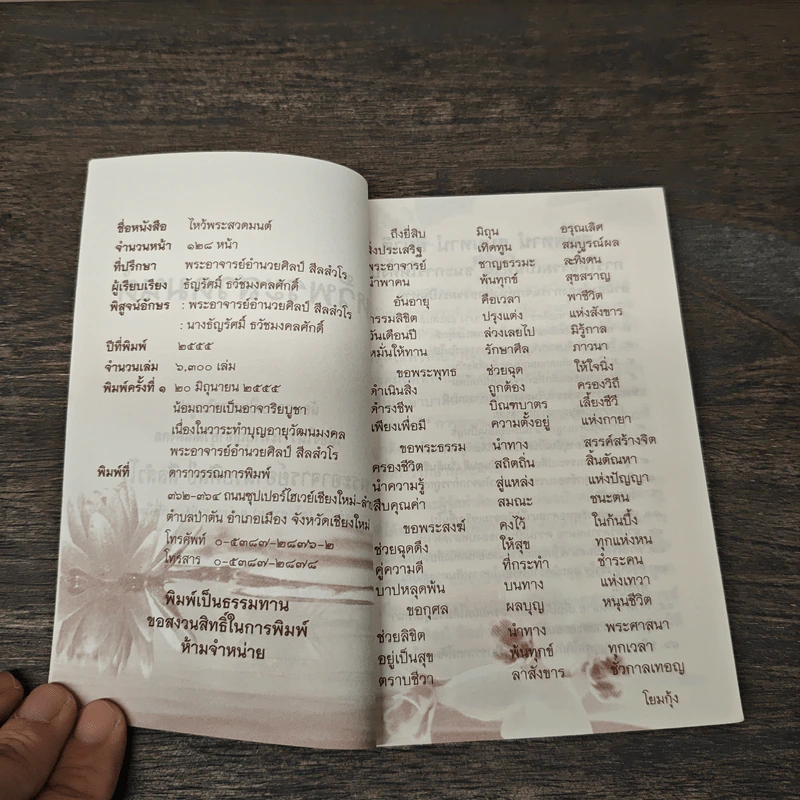 ชื่อหนังสือ ไหว้พระสวดมนต์
จำนวนหน้า ๑๒๘ หน้า
ที่ปรึกษา พระอาจารย์อำนวยศิลป์ สีลสํวโร
ผู้เรียบเรียง ธัญรัศมิ์ ธวัชมงคลศักดิ์
พิสูจน์อักษร : พระอาจารย์อำนวยศิลป์ สีลสํวโร
: นางธัญรัศมิ์ ธวัชมงคลศักดิ์
ปีที่พิมพ์ ๒๕๕๕
จำนวนเล่ม ๖,๓๐๐ เล่ม
พิมพ์ครั้งที่ ๑ ๒๐ มิถุนายน ๒๕๕๕
น้อมถวายเป็นอาจาริยบูชา
เนื่องในวาระทำบุญอายุวัฒนมงคล
พระอาจารย์อำนวยศิลป์ สีลสํวโร
พิมพ์ที่ ดาราวรรณการพิมพ์
๓๖๒-๓๖๔ ถนนซุปเปอร์ไฮเวย์เชียงใหม่-ลำ
ตำบลป่าตัน อำเภอเมือง จังหวัดเชียงใหม่
โทรศัพท์ ๐-๕๓๘๗-๒๘๗๖-๒
โทรสาร ๐-๕๓๘๗-๒๘๗๔
พิมพ์เป็นธรรมทาน
ขอสงวนสิทธิ์ในการพิมพ์
ห้ามจำหน่าย
ถึงยี่สิบ มิถุน อรุณเลิศ
สิ่งประเสริฐ เทิดทูน สมบูรณ์ผล
พระอาจารย์ ชาญธรรมะ ละทิ้งตน
นำพาคน พ้นทุกข์ สุขสราญ
อันอายุ คือเวลา พาชีวิต
กรรมลิขิต ปรุงแต่ง แห่งสังขาร
วันเดือนปี ล่วงเลยไป มิรู้กาล
หมั่นให้ทาน รักษาศีล ภาวนา
ขอพระพุทธ ช่วยฉุด ให้ใจนิ่ง
ดำเนินสิ่ง ถูกต้อง ครองวิถี
ดำรงชีพ บิณฑบาตร เลี้ยงชีวี
เพียงเพื่อมี ความตั้งอยู่ แห่งกายา
ขอพระธรรม นำทาง สรรค์สร้างจิต
ครองชีวิต สถิตถิ่น สิ้นตัณหา
นำความรู้ สู่แหล่ง แห่งปัญญา
สืบคุณค่า สมณะ ชนะตน
ขอพระสงฆ์ คงไว้ ในก้นบึ้ง
ช่วยฉุดดึง ให้สุข ทุกแห่งหน
คู่ความดี ที่กระทำ ชำระคน
บาปหลุดพ้น บนทาง แห่งเทวา
ขอกุศล ผลบุญ หนุนชีวิต
ช่วยลิขิต นำทาง พระศาสนา
อยู่เป็นสุข พ้นทุกข์ ทุกเวลา
ตราบชีวา ลาสังขาร ชั่วกาลเทอญ
โยมกุ้ง